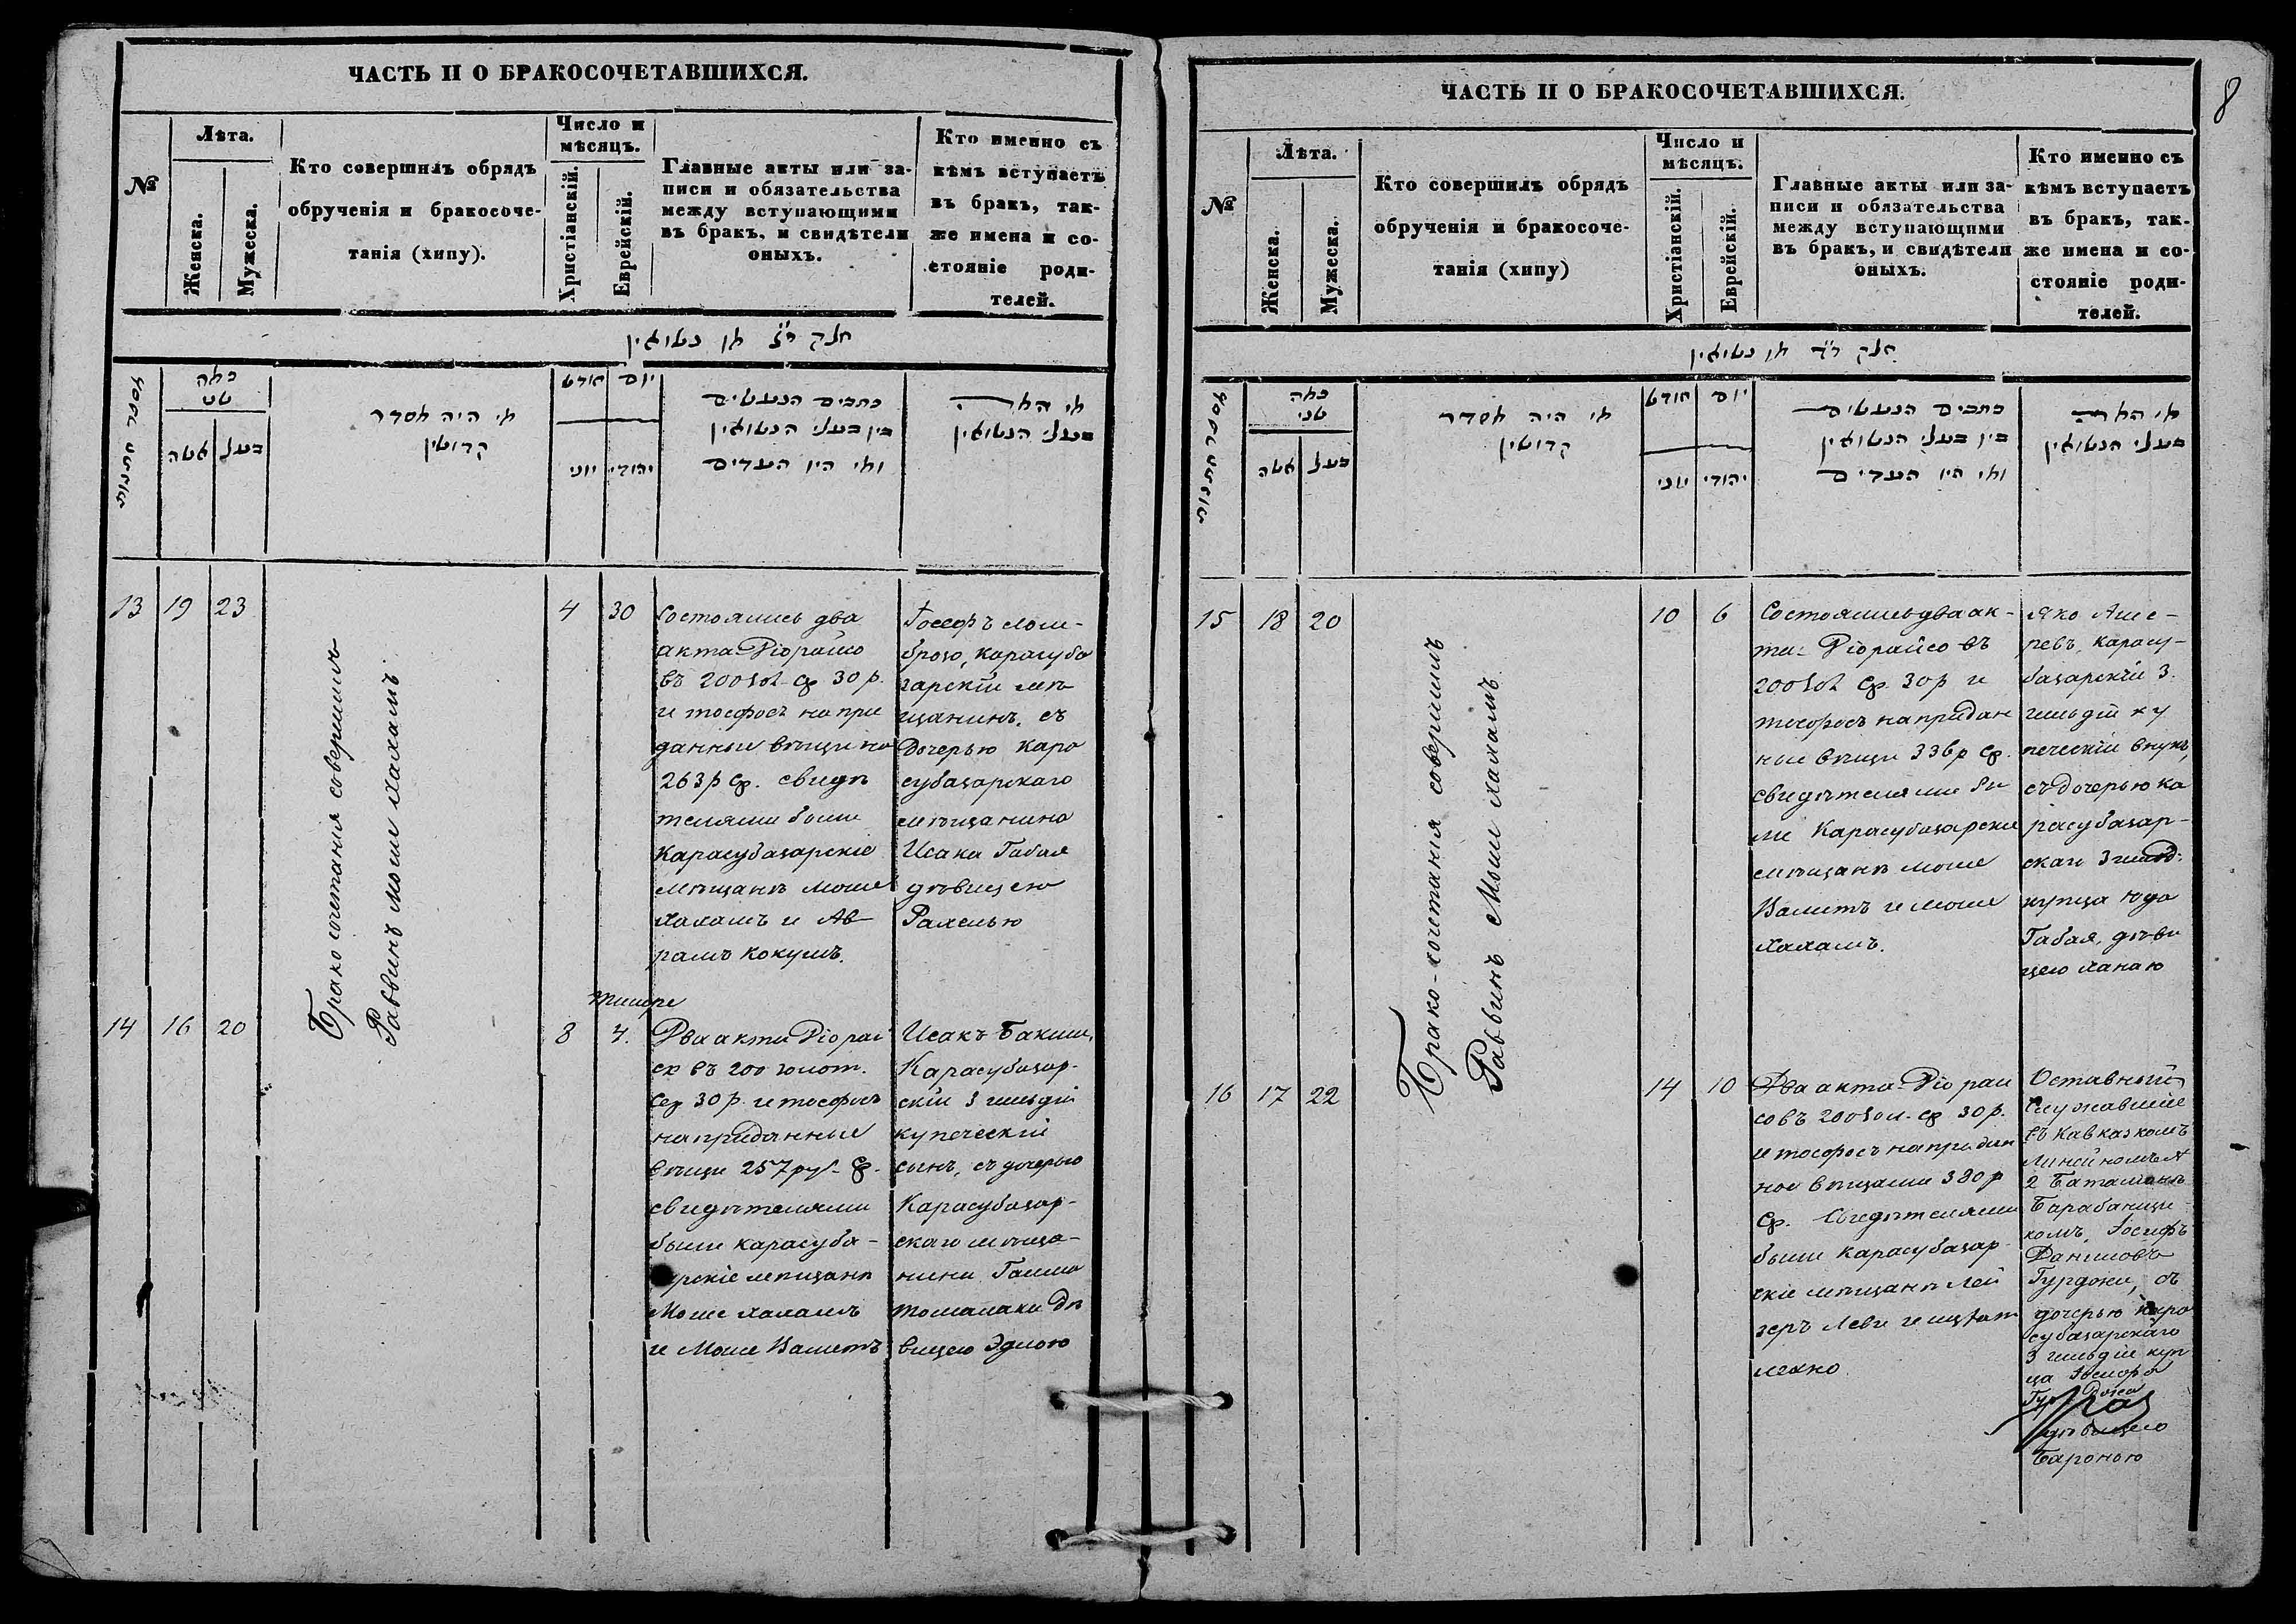 ЧАСТЬ II О БРАКОСОЧЕТАВШИХСЯ.
№
Лѣта.
Женска.
Мужеска.
Кто совершилъ обрядъ
обрученія и бракосоче-
танія (хипу).
Число и
мѣсяцъ.
Христіанскій.
Еврейскій.
Главные акты или за-
писи и обязательства
между вступающими
въ бракъ, и свидѣтели
оныхъ.
Кто именно съ
кѣмъ вступаетъ
въ бракъ, так-
же имена и со-
стояніе роди-
телей.
חלק ב״ מן נשואין
כלה
שני
אשה
בעל
מי היה מסדר
קדושין
חודש
יום
יוני
יהודי
כתבים הנעשים
בין בעלי הנשואין
ומי היו העדים
מי המה
בעלי הנשואין
13
19
23
Брако сочетанія совершилъ
Раввинъ Моше Хахамъ.
4
30
Состоялись два
акта Діорайсо
въ 200 зол. ср 30 р.
и тосфосъ на при
данные вѣщи на
263 р ср. свидѣ
телями были
Карасубазарскіе
мѣщанѣ Моше
Хахамъ и Ав
рамъ Кокушъ.
Іосефъ Лом-
брозо, карасуба
зарскій мѣ
щанинъ, съ
дочерью кара
субазарскаго
мѣщанина
Исака Габая
дѣвицею
Рахелью
14
16
20
8
4.
Два акта Діорай
со въ 200 золот.
сер 30 р. и тосфосъ
на приданные
вѣщи 257 руб. ср.
свидѣтелями
были карасуба-
рскіе мѣщанѣ
Моше Хахамъ
и Моше Валитъ
Исакъ Бакши,
Карасубазар-
скій 3 гильдіи
купеческій
сынъ, съ дочерью
Карасубазар-
скаго мѣща-
нина
дѣ
вицею
ЧАСТЬ II О БРАКОСОЧЕТАВШИХСЯ.
8
№
Лѣта.
Женска.
Мужеска.
Кто совершилъ обрядъ
обрученія и бракосоче-
танія (хипу)
Число и
мѣсяцъ.
Христіанскій.
Еврейскій.
Главные акты или за-
писи и обязательства
между вступающими
въ бракъ, и свидѣтели
оныхъ.
Кто именно съ
кѣмъ вступаетъ
въ бракъ, так-
же имена и со-
стояніе роди-
телей.
חלק ב״ מן נשואין
כלה
שני
אשה
בעל
מי היה מסדר
קדושין
חודש
יום
יוני
יהודי
כתבים הנעשים
בין בעלי הנשואין
ומי היו העדים
מי המה
בעלי הנשואין
15
18
20
Брако-сочетанія совершилъ
Раввинъ Моше Хахамъ.
10
6
Состоялись два ак-
та: Діорайсо въ
200 зол ср. 30 р и
тосфосъ на придан
ные вѣщи 336 р ср.
свидѣтелями бы
ли Карасубазарскіе
мѣщанѣ Моше
Валитъ и Моше
Хахамъ.
Яко Аше-
ревъ, карасу-
базарскій 3.
гильдіи ку
печескій внукъ,
съ дочерью ка
расубазар-
скаго 3 гильд:
купца Юда
Габая, дѣви
цею Ханою
16
17
22
14
10
Два акта Діорай
со въ 200 зол. ср 30 р.
и тосфосъ на придан
ное вѣщами 380 р
ср. Свидѣтелями
были карасубазар
скіе мѣщанѣ Лей
зеръ Леви и
Оставный
служавшіе
въ Кавказкомъ
Линейномъ №
2 Баталіонѣ
Барабанщи
комъ, Іосифъ
Даниловъ
Гурджи, съ
дочерью кара
субазарскаго
3 гильдіи куп
ца
дѣвицею